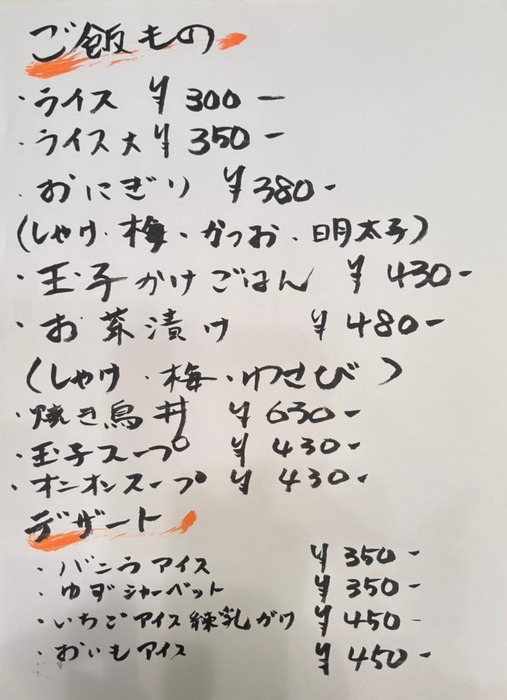 ご飯もの
・ライス ¥300-
・ライス大 ¥350-
・おにぎり ¥380-
(しゃけ・梅・かつお・明太子)
・玉子かけごはん ¥430-
・お茶漬け ¥480-
(しゃけ・梅・わさび)
・焼き鳥丼 ¥630-
・玉子スープ ¥430-
・オニオンスープ ¥430-
デザート
・バニラアイス ¥350-
・ゆずシャーベット ¥350-
・いちごアイス練乳がけ ¥450-
・おいもアイス ¥450-